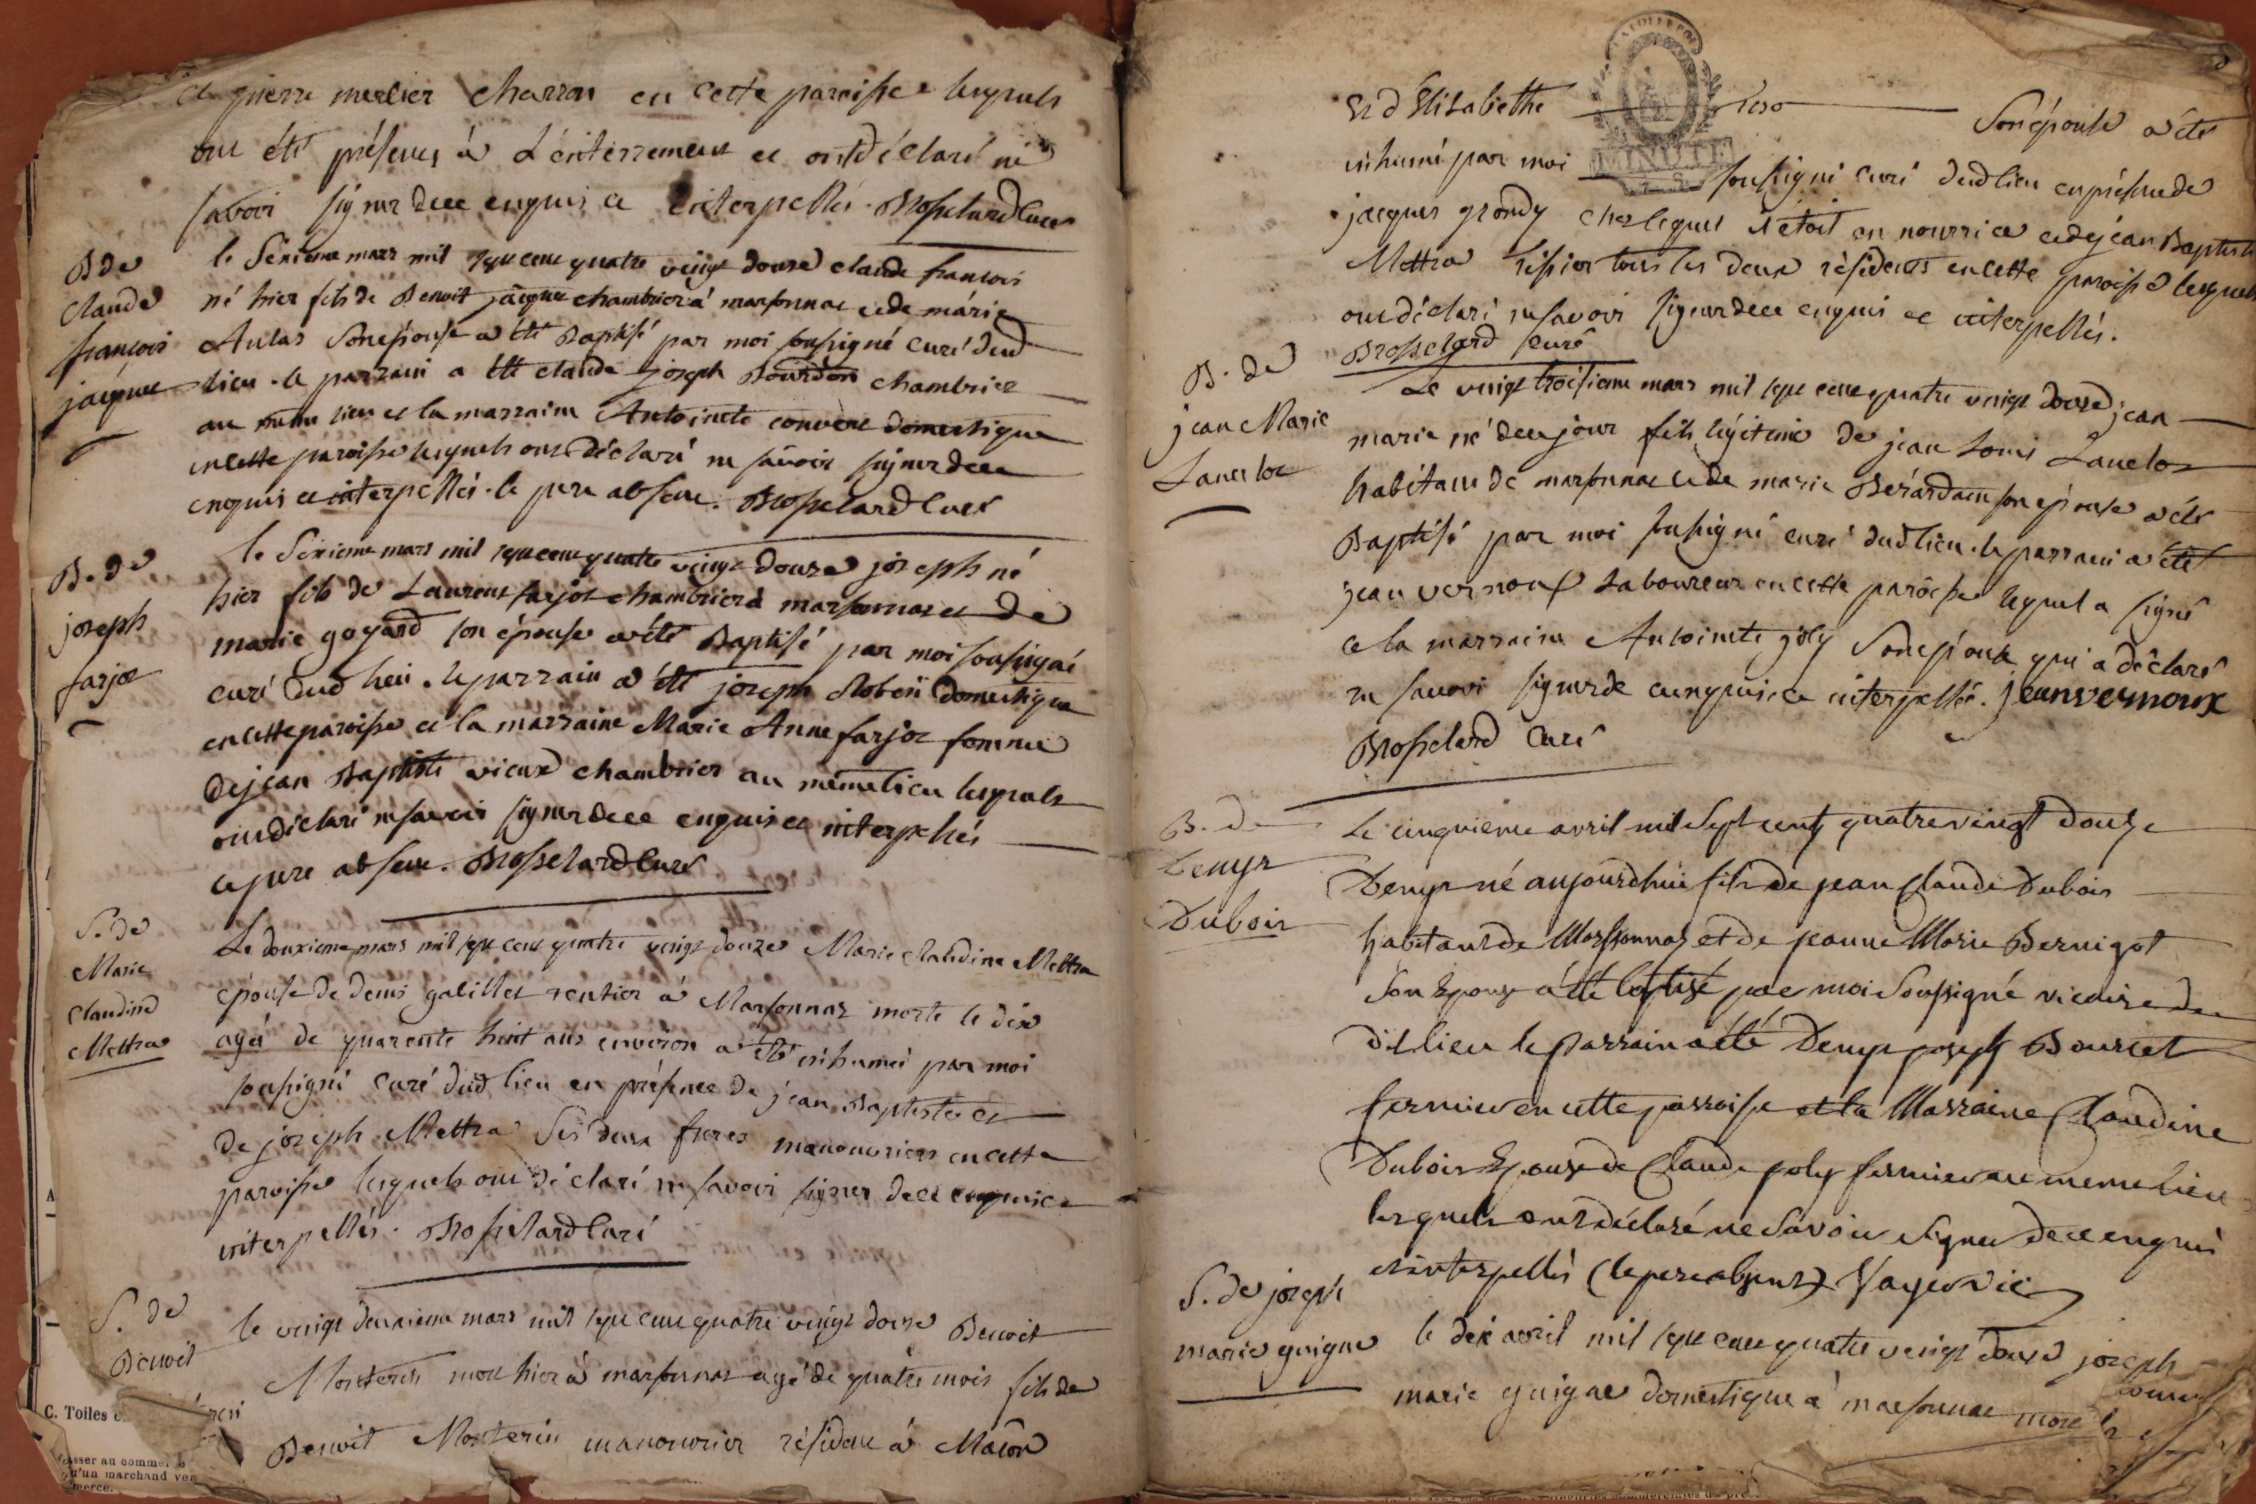 et pierre merlier charron en cette paroisse lesquels
ont été présens à L'enterrement et ont déclaré ne
savoir signer de ce enquis et interpellés. Brosselard Curé
B de
Claude
françois
jacques
le Sixieme mars mil sept cent quatre vingt douze claude francois
né hier fils de Benoit jacques chambrier à marsonnas et de marie
Aulas Son épouse a été Baptisé par moi soussigné curé dud
lieu. le parrain a été claude joseph Bourdon chambrier
au même lieu et la marraine Antoinette convert domestique
en cette paroisse lesquels ont déclaré ne savoir signer de ce
enquis et interpellés. le pere absent. Brosselard Curé
B. de
joseph
farjot
le Sixieme mars mil sept cent quatre vingt douze joseph né
hier fils de Laurent farjot chambrier à marsonnas et de
marie goyard son épouse a été Baptisé par moi soussigné
curé dud lieu. le parrain a été joseph Robin domestique
en cette paroisse et la marraine Marie Anne farjot femme
de jean Baptiste vieux chambrier au même lieu lesquels
ont déclaré ne savoir signer de ce enquis et interpellés
le pere absent. Brosselard Curé
S. de
Marie
Claudine
Mettra
Le douzieme mars mil sept cent quatre vingt douze Marie Claudine Mettra
épouse de denis galillet rentier à Marsonnas morte le dix
agée de quarente huit ans environ a été inhumée par moi
soussigné curé dud lieu en présence de jean Baptiste et
de joseph Mettra Ses deux freres manouvriers en cette
paroisse lesquels ont déclaré ne savoir signer de ce enquis et
interpellés. Brosselard Curé
S. de
Benoit
le vingt deuxieme mars mil sept cent quatre vingt douze Benoit
Monterin mort hier à marsonnas agé de quatre mois fils de
Benoit Monterin manouvrier résident à Macôn
et d'Elisabethe Son épouse a été
MINUTE
inhumé par moi soussigné curé dud lieu en présence de
jacques grondy chez lequel il étoit en nourrice et de jean Baptiste
Mettra tissier tous les deux résidents en cette paroisse lesquels
ont déclaré ne savoir signer de ce enquis et interpellés.
Brosselard Curé
B. de
jean Marie
Lancelot
Le vingt troisieme mars mil sept cent quatre vingt douze jean
marie né de ce jour fils légitime de jean Louis Lancelot
habitant de marsonnas et de marie Bérardan son épouse a été
Baptisé par moi soussigné curé dud lieu. le parrain a été
jean vernoux Laboureur en cette paroisse lequel a signé
et la marraine Antoinette joly Son épouse qui a déclaré
ne savoir signer de ce enquise et interpellée. jean vernoux
Brosselard Curé
B. de
Denys
Dubois
Le cinquième avril mil Sept cents quatre vingt douze
Denys né aujourd'hui fils de jean Claude Dubois
habitant de Marssonnas et de jeanne Marie Bernigot
Son Epouse a été baptisé par moi Soussigné vicaire du
dit lieu le parrain a été Denys joseph Bourcet
fermier en cette parroisse et la Marraine Claudine
Dubois Epouse de Claude joly fermier au meme lieu
lesquels ont déclaré ne Savoir Signer de ce enquis
et interpellés (le pere absent) Vayer vic
S. de joseph
marie guigue
le dix avril mil sept cent quatre vingt douze joseph
marie guigue domestique à marsonnas mort
C. Toiles
sser au comme
u'un marchand ven
merce.